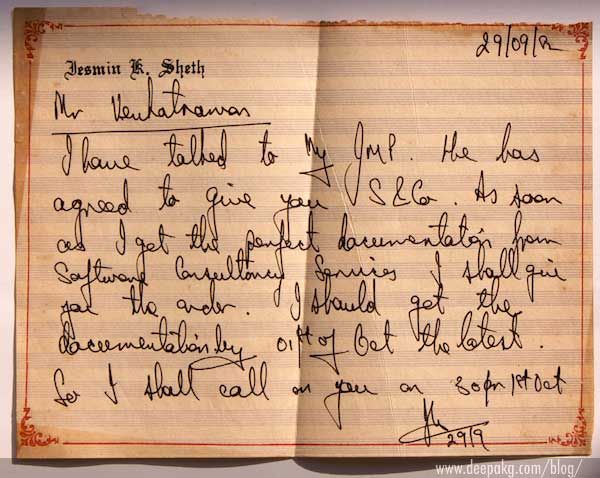 29/09/
Jesmin K. Sheth
Mr Venkatraman
I have talked to My JMP. He has
agreed to give you S&Co. As soon
as I get the perfect documentation from
Software Consultancy Services I shall give
you the order. I should get the
documentation by 01st of Oct the latest.
So I shall call on you on 30 or 1st Oct
29/9
www.deepakg.com/blog/